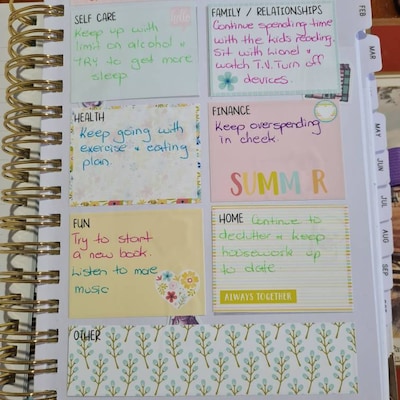 SELF CARE
Keep up with
limit on alcohol &
TRY to get more
sleep
FAMILY / RELATIONSHIPS
Continue spending time
with the kids reading.
Sit with Lionel &
watch T.V. Turn off
devices.
HEALTH
Keep going with
exercise & eating
plan.
FINANCE
Keep overspending
in check.
SUMM R
FUN
Try to start
a new book.
Listen to more
music
HOME Continue to
declutter & keep
housework up
to date
ALWAYS TOGETHER
OTHER
FEB
MAR
MAY
JUN
JUL
AUG
SEP